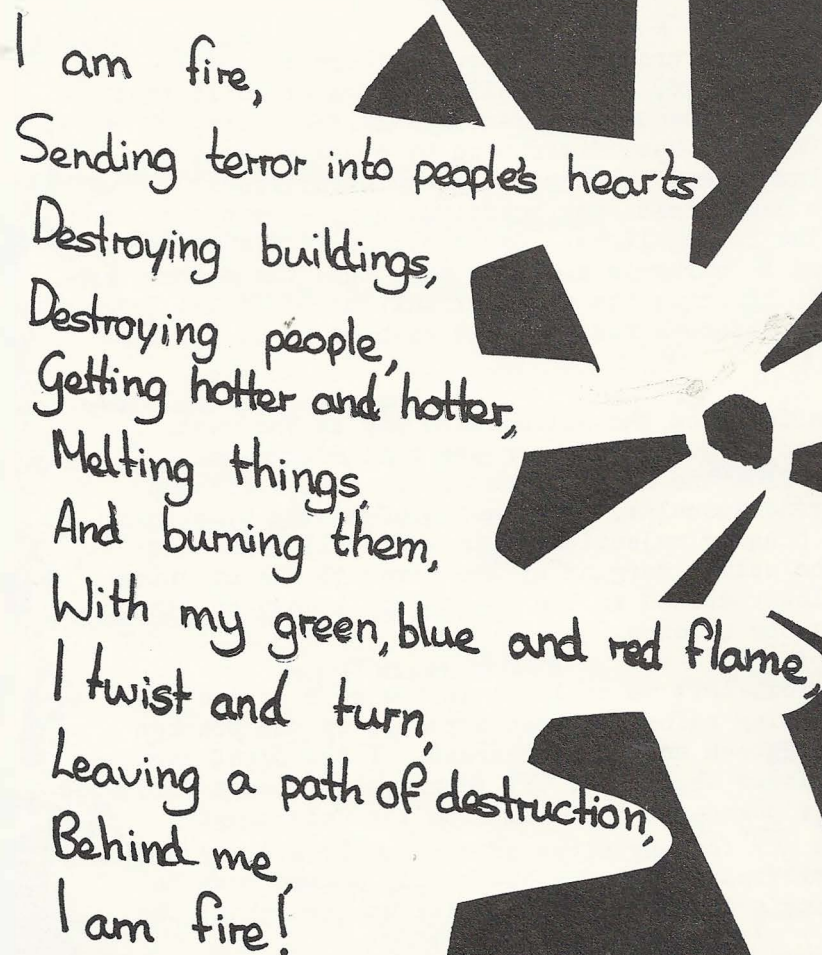 I am fire,
Sending terror into people's hearts
Destroying buildings,
Destroying people,
Getting hotter and hotter,
Melting things,
And burning them,
With my green, blue and red flame,
I twist and turn,
Leaving a path of destruction,
Behind me,
I am fire!